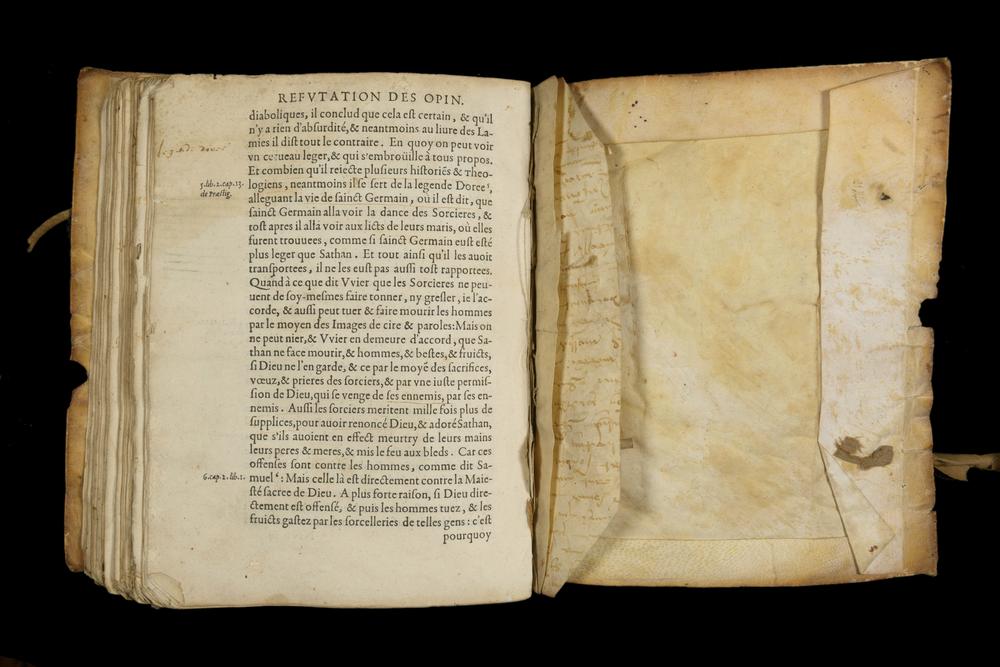 REFVTATION DES OPIN.
diaboliques, il conclud que cela eſt certain, & qu'il
n'y a rien d'abſurdité, & neantmoins au liure des La-
mies il diſt tout le contraire. En quoy on peut voir
vn cerueau leger, & qui s'embroüille à tous propos.
Et combien qu'il reiecte pluſieurs hiſtoriēs & Theo-
5.lib.2.cap.13.
de Præſtig.
logiens, neantmoins il ſe ſert de la legende Doree⁵,
alleguant la vie de ſainct Germain, où il eſt dit, que
ſainct Germain alla voir la dance des Sorcieres, &
toſt apres il alla voir aux licts de leurs maris, où elles
furent trouuees, comme ſi ſainct Germain euſt eſté
plus leger que Sathan. Et tout ainſi qu'il les auoit
tranſportees, il ne les euſt pas auſſi toſt rapportees.
Quand à ce que dit Vvier que les Sorcieres ne peu-
uent de ſoy-meſmes faire tonner, ny greſler, ie l'ac-
corde, & auſſi peut tuer & faire mourir les hommes
par le moyen des Images de cire & paroles: Mais on
ne peut nier, & Vvier en demeure d'accord, que Sa-
than ne face mourir, & hommes, & beſtes, & fruicts,
ſi Dieu ne l'en garde, & ce par le moyē des ſacrifices,
vœuz, & prieres des ſorciers, & par vne iuſte permiſ-
ſion de Dieu, qui ſe venge de ſes ennemis, par ſes en-
nemis. Auſſi les ſorciers meritent mille fois plus de
ſupplices, pour auoir renoncé Dieu, & adoré Sathan,
que s'ils auoient en effect meurtry de leurs mains
leurs peres & meres, & mis le feu aux bleds. Car ces
offenſes ſont contre les hommes, comme dit Sa-
6.cap.2.lib.1.
muel⁶: Mais celle là eſt directement contre la Maie-
ſté ſacree de Dieu. A plus forte raiſon, ſi Dieu dire-
ctement eſt offenſé, & puis les hommes tuez, & les
fruicts gaſtez par les ſorcelleries de telles gens: c'eſt
pourquoy